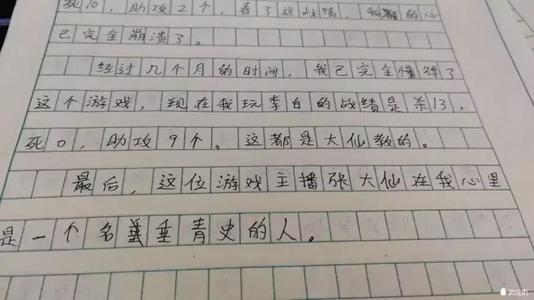 死10，助攻2个，看了这战绩，我都的心
已完全崩溃了。
经过几个月的时间，我已完全懂得了
这个游戏，现在我玩李白的战绩是杀13，
死0，助攻9个。这都是大仙教的。
最后，这位游戏主播张大仙在我心里
是一个名垂青史的人。